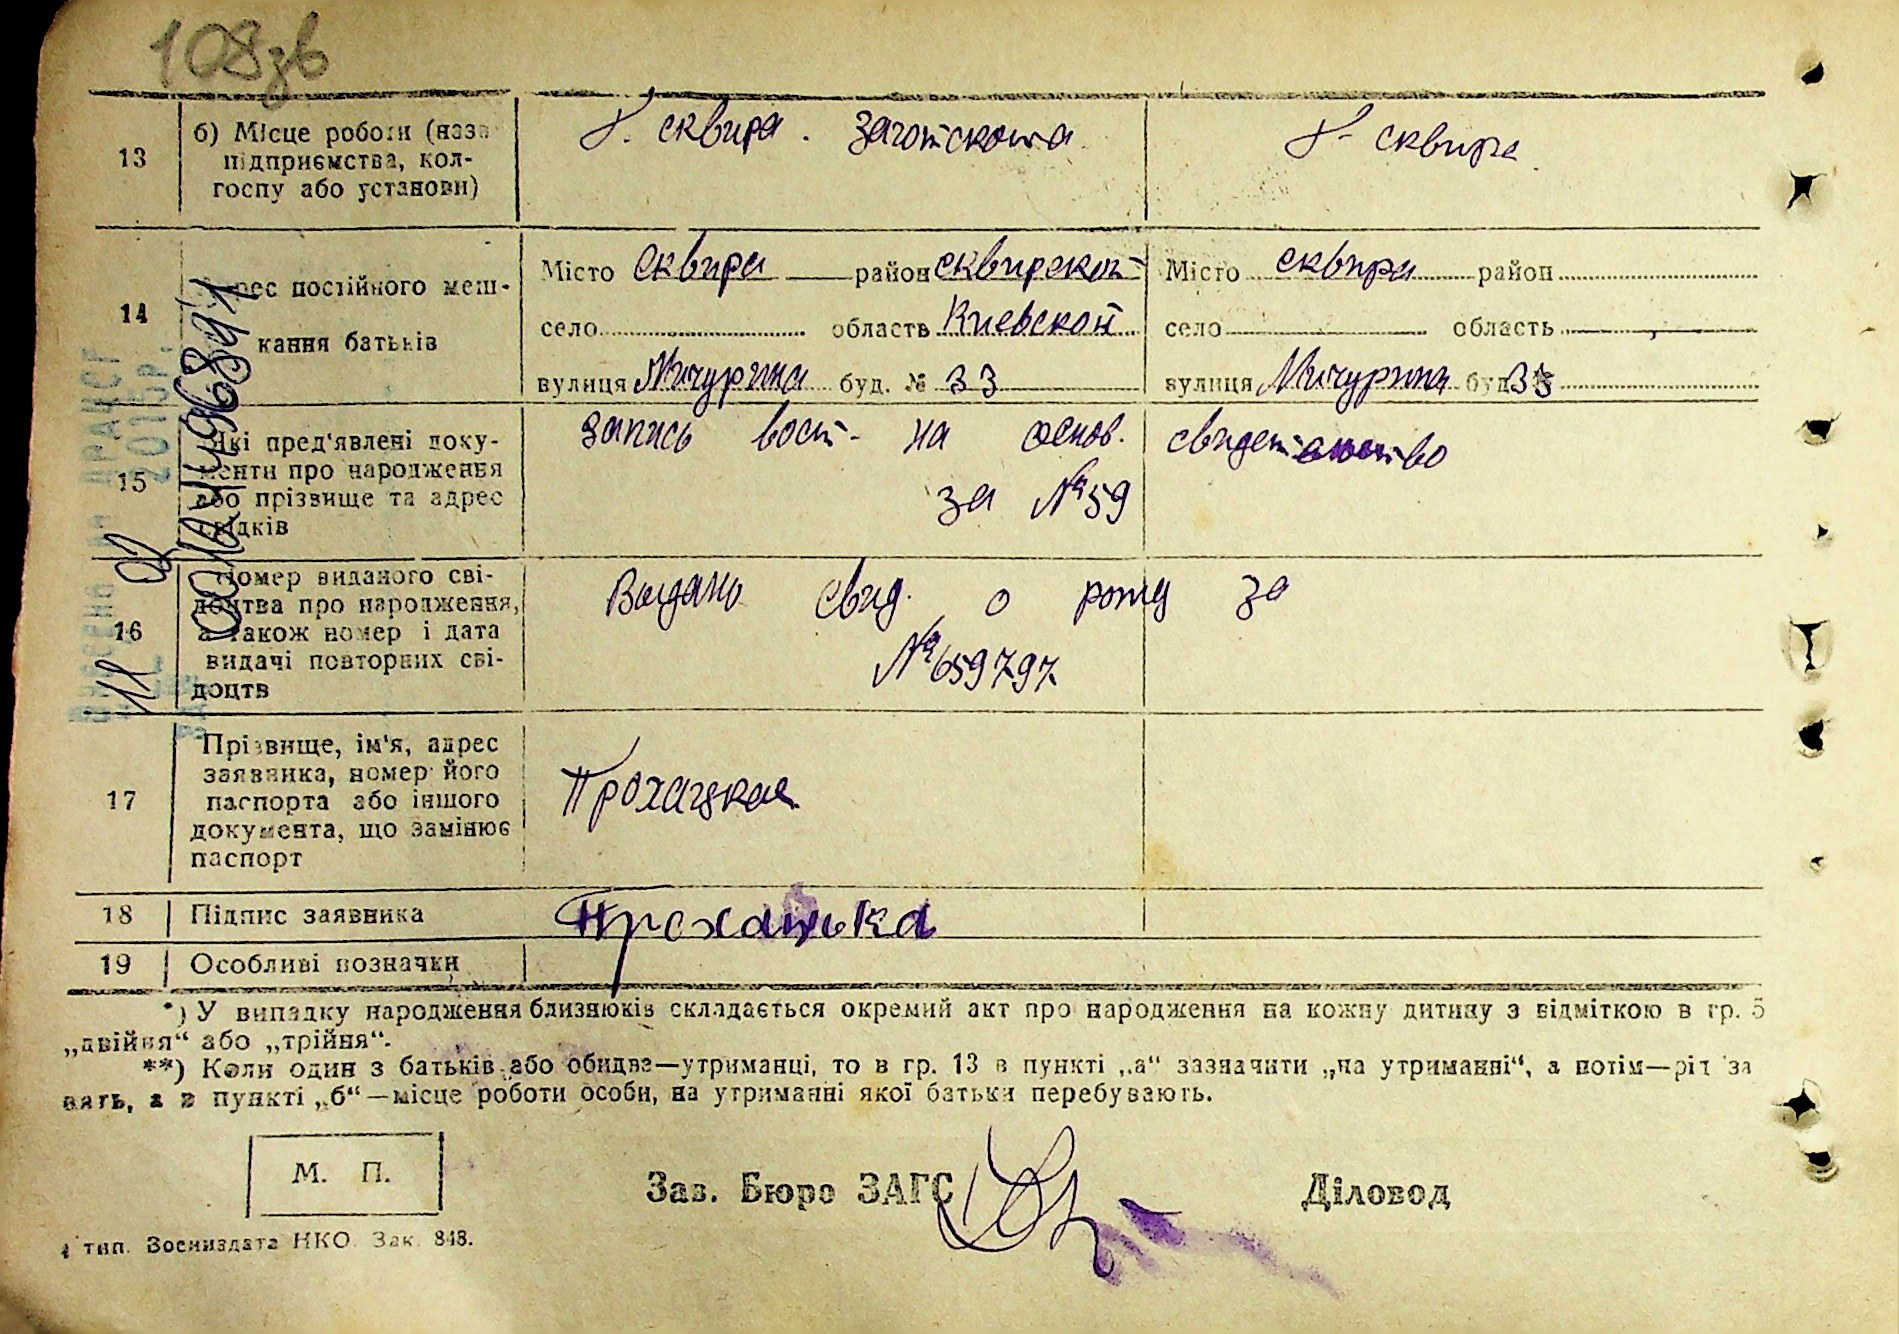 108зв
13
б) Місце роботи (назв
підприємства, кол-
госпу або установи)
г. сквира. Заготскота.
г. сквира
14
рес постійного меш-
кання батьків
Місто сквира район сквирской
село область Киевской
вулиця Мичурина буд. № 33
Місто сквира район
село область
вулиця Мичурина буд 33
15
Які пред'явлені доку-
менти про народження
або прізвище та адрес
свідків
запись восст. на основ. свидетельство
за № 59
16
Номер виданого сві-
доцтва про народження,
а також номер і дата
видачі повторних сві-
доцтв
Выдано свид. о рожд за
№ 659797
17
Прізвище, ім'я, адрес
заявника, номер його
паспорта або іншого
документа, що замінює
паспорт
Прохацкая
18
Підпис заявника
Прохацька
19
Особливі позначки
*) У випадку народження близнюків складається окремий акт про народження на кожну дитину з відміткою в гр. 5
„двійня“ або „трійня“.
**) Коли один з батьків або обидва—утриманці, то в гр. 13 в пункті „а“ зазначити „на утриманні“, а потім—рід за
нять, а в пункті „б“—місце роботи особи, на утриманні якої батьки перебувають.
М. П.
Зав. Бюро ЗАГС
Діловод
4 тип. Воениздата НКО. Зак. 848.